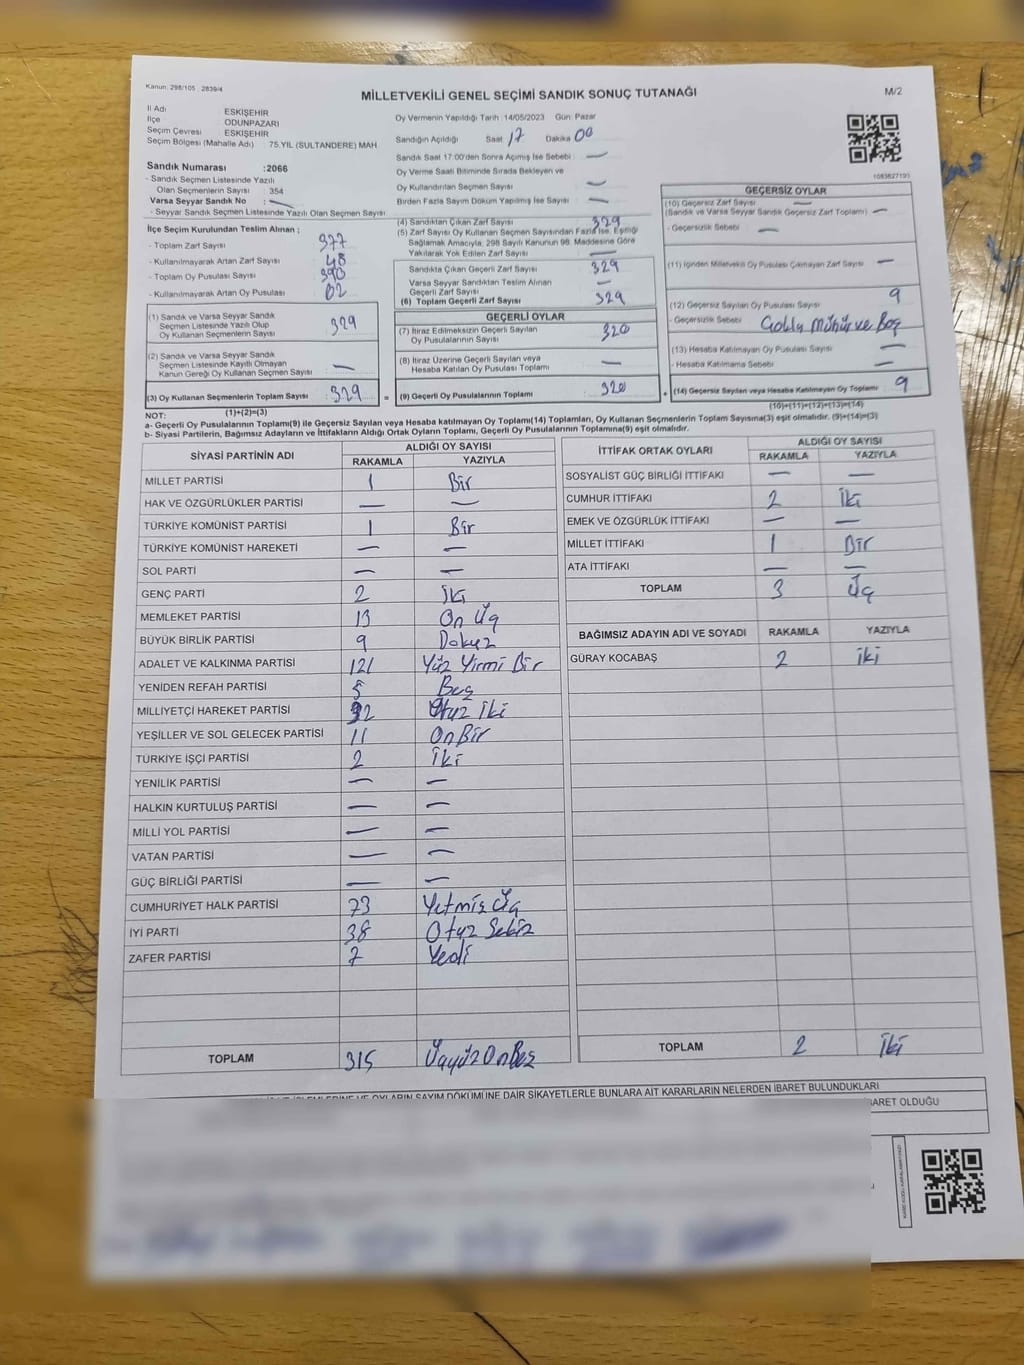 Kanun: 298/105 , 2839/4
MİLLETVEKİLİ GENEL SEÇİMİ SANDIK SONUÇ TUTANAĞI
M/2
İl Adı ESKİŞEHİR
İlçe ODUNPAZARI
Seçim Çevresi ESKİŞEHİR
Seçim Bölgesi (Mahalle Adı) 75.YIL (SULTANDERE) MAH.
Oy Vermenin Yapıldığı Tarih :14/05/2023 Gün: Pazar
Sandığın Açıldığı Saat 17 Dakika 00
Sandık Saat 17:00'den Sonra Açılmış İse Sebebi : —
Oy Verme Saati Bitiminde Sırada Bekleyen ve
Oy Kullandırılan Seçmen Sayısı : —
Birden Fazla Sayım Döküm Yapılmış İse Sayısı : —
1083627193
Sandık Numarası :2066
- Sandık Seçmen Listesinde Yazılı
Olan Seçmenlerin Sayısı : 354
Varsa Seyyar Sandık No : —
- Seyyar Sandık Seçmen Listesinde Yazılı Olan Seçmen Sayısı:
İlçe Seçim Kurulundan Teslim Alınan ;
- Toplam Zarf Sayısı : 377
- Kullanılmayarak Artan Zarf Sayısı : 48
- Toplam Oy Pusulası Sayısı : 390
- Kullanılmayarak Artan Oy Pusulası : 02
(1) Sandık ve Varsa Seyyar Sandık
Seçmen Listesinde Yazılı Olup
Oy Kullanan Seçmenlerin Sayısı : 329
(2) Sandık ve Varsa Seyyar Sandık
Seçmen Listesinde Kayıtlı Olmayan
Kanun Gereği Oy Kullanan Seçmen Sayısı : —
(3) Oy Kullanan Seçmenlerin Toplam Sayısı : 329
(1)+(2)=(3)
(4) Sandıktan Çıkan Zarf Sayısı : 329
(5) Zarf Sayısı Oy Kullanan Seçmen Sayısından Fazla İse, Eşitliği
Sağlamak Amacıyla, 298 Sayılı Kanunun 98. Maddesine Göre
Yakılarak Yok Edilen Zarf Sayısı : —
Sandıkta Çıkan Geçerli Zarf Sayısı : 329
Varsa Seyyar Sandıktan Teslim Alınan
Geçerli Zarf Sayısı : —
(6) Toplam Geçerli Zarf Sayısı : 329
GEÇERLİ OYLAR
(7) İtiraz Edilmeksizin Geçerli Sayılan
Oy Pusulalarının Sayısı : 320
(8) İtiraz Üzerine Geçerli Sayılan veya
Hesaba Katılan Oy Pusulası Toplamı : —
= (9) Geçerli Oy Pusulalarının Toplamı : 320
GEÇERSİZ OYLAR
(10) Geçersiz Zarf Sayısı —
(Sandık ve Varsa Seyyar Sandık Geçersiz Zarf Toplamı) : —
- Geçersizlik Sebebi : —
(11) İçinden Milletvekili Oy Pusulası Çıkmayan Zarf Sayısı : —
(12) Geçersiz Sayılan Oy Pusulası Sayısı : 9
- Geçersizlik Sebebi : Çoklu Mühür ve Boş
(13) Hesaba Katılmayan Oy Pusulası Sayısı : —
- Hesaba Katılmama Sebebi : —
+ (14) Geçersiz Sayılan veya Hesaba Katılmayan Oy Toplamı : 9
(10)+(11)+(12)+(13)=(14)
NOT:
a- Geçerli Oy Pusulalarının Toplamı(9) ile Geçersiz Sayılan veya Hesaba katılmayan Oy Toplamı(14) Toplamları, Oy Kullanan Seçmenlerin Toplam Sayısına(3) eşit olmalıdır. (9)+(14)=(3)
b- Siyasi Partilerin, Bağımsız Adayların ve İttifakların Aldığı Ortak Oyların Toplamı, Geçerli Oy Pusulalarının Toplamına(9) eşit olmalıdır.
SİYASİ PARTİNİN ADI ALDIĞI OY SAYISI
RAKAMLA YAZIYLA
MİLLET PARTİSİ 1 Bir
HAK VE ÖZGÜRLÜKLER PARTİSİ — —
TÜRKİYE KOMÜNİST PARTİSİ 1 Bir
TÜRKİYE KOMÜNİST HAREKETİ — —
SOL PARTİ — —
GENÇ PARTİ 2 İki
MEMLEKET PARTİSİ 13 On Üç
BÜYÜK BİRLİK PARTİSİ 9 Dokuz
ADALET VE KALKINMA PARTİSİ 121 Yüz Yirmi Bir
YENİDEN REFAH PARTİSİ 5 Beş
MİLLİYETÇİ HAREKET PARTİSİ 32 Otuz İki
YEŞİLLER VE SOL GELECEK PARTİSİ 11 On Bir
TÜRKİYE İŞÇİ PARTİSİ 2 İki
YENİLİK PARTİSİ — —
HALKIN KURTULUŞ PARTİSİ — —
MİLLİ YOL PARTİSİ — —
VATAN PARTİSİ — —
GÜÇ BİRLİĞİ PARTİSİ — —
CUMHURİYET HALK PARTİSİ 73 Yetmiş Üç
İYİ PARTİ 38 Otuz Sekiz
ZAFER PARTİSİ 7 Yedi
TOPLAM 315 Üçyüz On Beş
İTTİFAK ORTAK OYLARI ALDIĞI OY SAYISI
RAKAMLA YAZIYLA
SOSYALİST GÜÇ BİRLİĞİ İTTİFAKI — —
CUMHUR İTTİFAKI 2 İki
EMEK VE ÖZGÜRLÜK İTTİFAKI — —
MİLLET İTTİFAKI 1 Bir
ATA İTTİFAKI — —
TOPLAM 3 Üç
BAĞIMSIZ ADAYIN ADI VE SOYADI RAKAMLA YAZIYLA
GÜRAY KOCABAŞ 2 iki
TOPLAM 2 İki
İŞLEMLERİNE VE OYLARIN SAYIM DÖKÜMÜNE DAİR ŞİKAYETLERLE BUNLARA AİT KARARLARIN NELERDEN İBARET BULUNDUKLARI
İBARET OLDUĞU